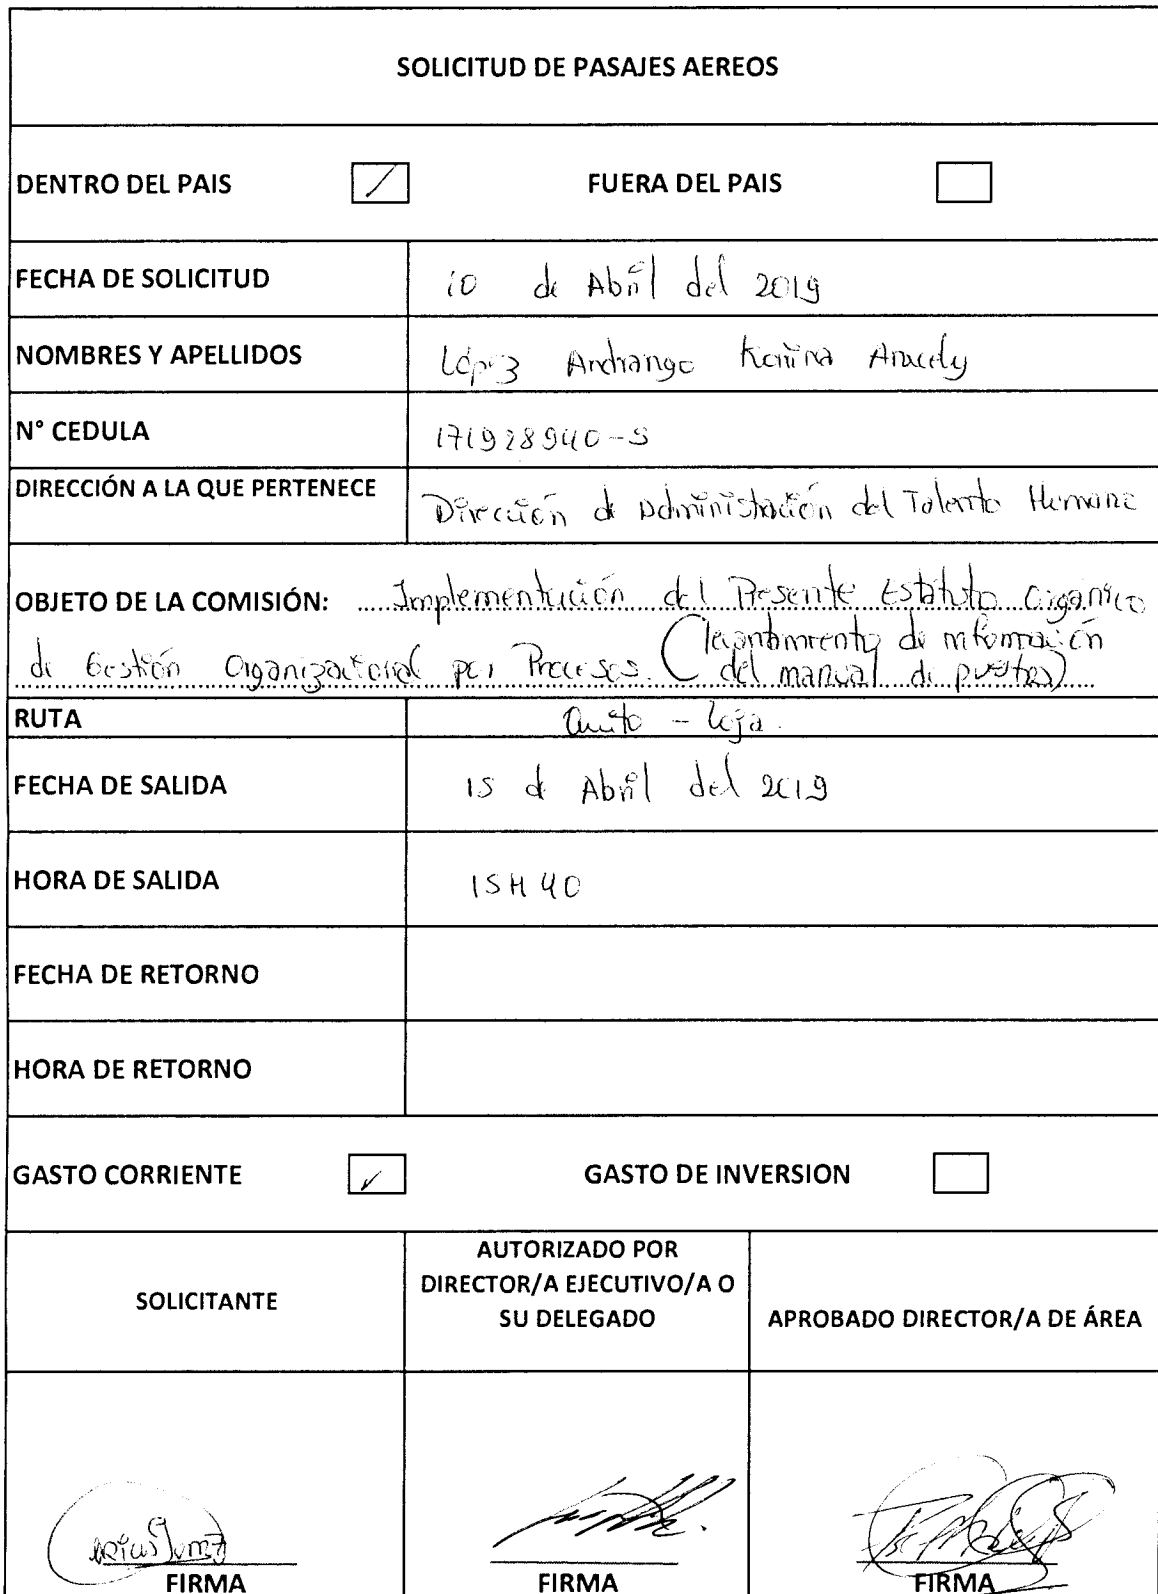 SOLICITUD DE PASAJES AEREOS
DENTRO DEL PAIS FUERA DEL PAIS
FECHA DE SOLICITUD 10 de Abril del 2019
NOMBRES Y APELLIDOS López Andrango Karina Aracely
N° CEDULA 171928940-5
DIRECCIÓN A LA QUE PERTENECE Dirección de Administración del Talento Humano
OBJETO DE LA COMISIÓN: Implementación del Presente Estatuto Organico
de Gestión Organizacional por Procesos. (levantamiento de información
del manual de puestos)
RUTA Quito - Loja.
FECHA DE SALIDA 15 de Abril del 2019
HORA DE SALIDA 15H40
FECHA DE RETORNO
HORA DE RETORNO
GASTO CORRIENTE GASTO DE INVERSION
SOLICITANTE
AUTORIZADO POR
DIRECTOR/A EJECUTIVO/A O
SU DELEGADO
APROBADO DIRECTOR/A DE ÁREA
FIRMA FIRMA FIRMA